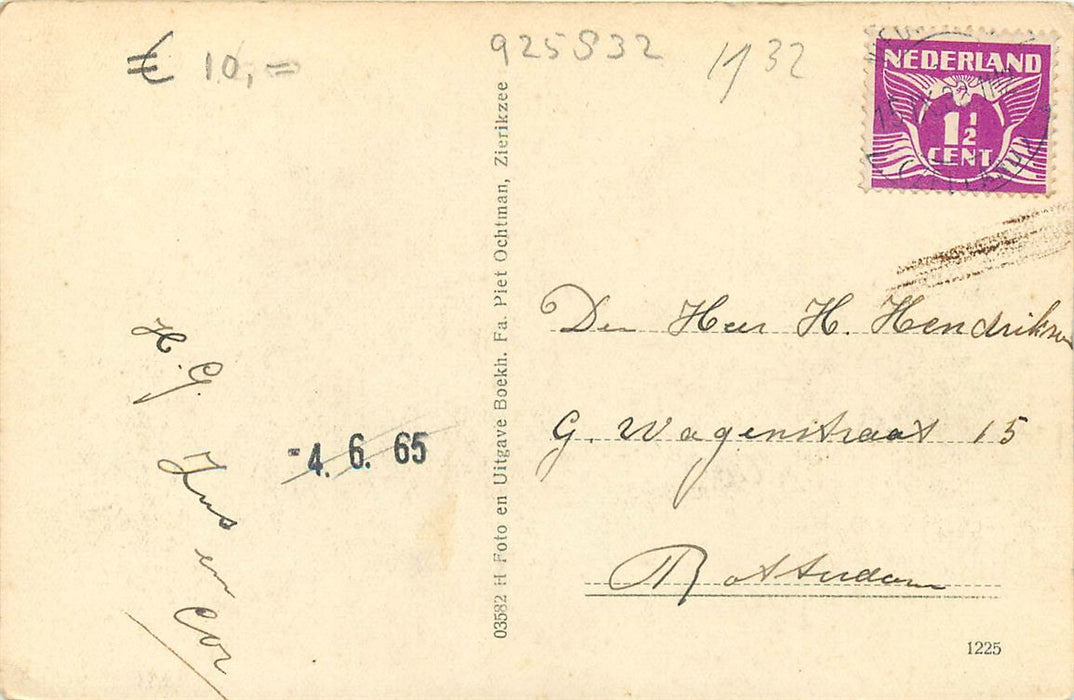 € 10,=
925832
1932
NEDERLAND
1½
CENT
03582 H Foto en Uitgave Boekh. Fa. Piet Ochtman, Zierikzee
Den Heer H. Hendrikse
G. Wagenstraat 15
Rotterdam
H. G.
Jus en Cor
-4. 6. 65
1225